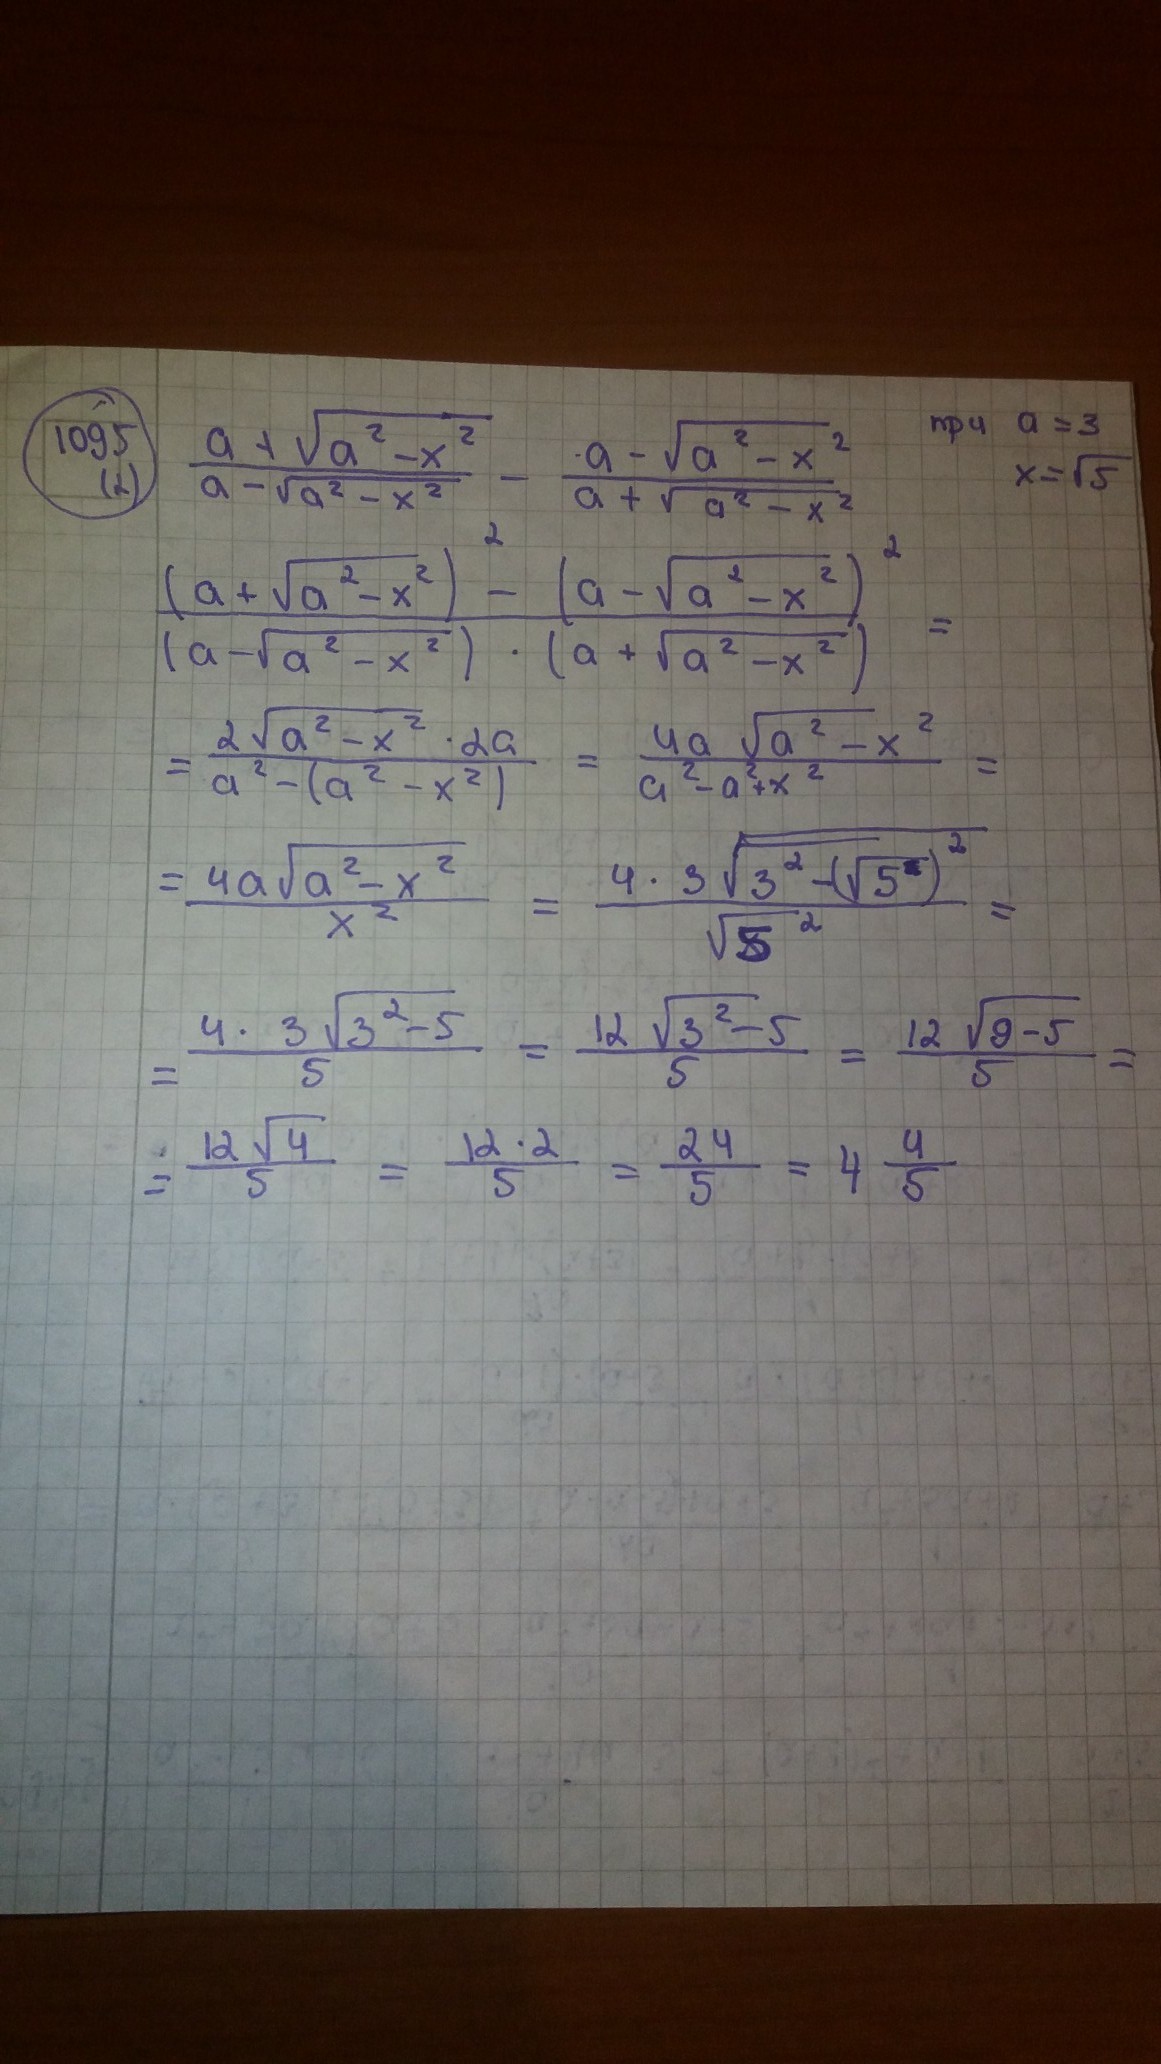 1095 (2) (a + √(a² - x²))/(a - √(a² - x²)) - (a - √(a² - x²))/(a + √(a² - x²)) при a = 3
x = √5
((a + √(a² - x²))² - (a - √(a² - x²))²)/((a - √(a² - x²)) · (a + √(a² - x²))) =
= (2√(a² - x²) · 2a)/(a² - (a² - x²)) = (4a √(a² - x²))/(a² - a² + x²) =
= (4a√(a² - x²))/x² = (4 · 3√(3² - (√5)²))/√5² =
= (4 · 3√(3² - 5))/5 = (12√(3² - 5))/5 = (12√(9 - 5))/5 =
= (12√4)/5 = (12 · 2)/5 = 24/5 = 4 4/5